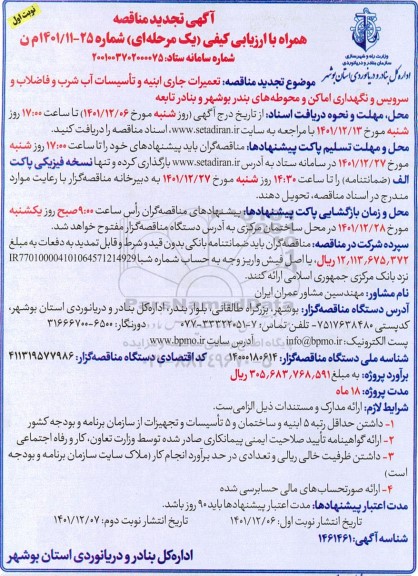 نوبت اول
آگهی تجدید مناقصه
همراه با ارزیابی کیفی (یک مرحله‌ای) شماره ۲۵-۱۴۰۱/۱۱م ن
شماره سامانه ستاد: ۲۰۰۱۰۰۳۷۰۲۰۰۰۰۷۵
وزارت راه و شهرسازی
سازمان بنادر و دریانوردی
اداره کل بنادر و دریانوردی استان بوشهر
موضوع تجدید مناقصه: تعمیرات جاری ابنیه و تأسیسات آب شرب و فاضلاب و
سرویس و نگهداری اماکن و محوطه‌های بندر بوشهر و بنادر تابعه
محل، مهلت و نحوه دریافت اسناد: از تاریخ درج آگهی (روز شنبه مورخ ۱۴۰۱/۱۲/۰۶) تا ساعت ۱۷:۰۰ روز
شنبه مورخ ۱۴۰۱/۱۲/۱۳ با مراجعه به سایت www.setadiran.ir، اسناد مناقصه را دریافت کنید.
محل و مهلت تسلیم پاکت پیشنهادها: مناقصه‌گران باید پیشنهادهای خود را تا ساعت ۱۷:۰۰ روز شنبه مورخ
۱۴۰۱/۱۲/۲۷ در سامانه ستاد به آدرس www.setadiran.ir بارگذاری کرده و تنها نسخه فیزیکی پاکت
الف (ضمانتنامه) را تا ساعت ۱۴:۳۰ روز شنبه مورخ ۱۴۰۱/۱۲/۲۷ به دبیرخانه مناقصه‌گزار با رعایت موارد
مندرج در اسناد مناقصه، تحویل دهند.
محل و زمان بازگشایی پاکت پیشنهادها: پیشنهادهای مناقصه‌گران رأس ساعت ۹:۰۰ صبح روز یکشنبه
مورخ ۱۴۰۱/۱۲/۲۸ در محل ساختمان مرکزی به آدرس دستگاه مناقصه‌گزار مفتوح خواهد شد.
سپرده شرکت در مناقصه: مناقصه‌گران باید ضمانتنامه بانکی بدون قید و شرط و قابل تمدید به دفعات به مبلغ
۱۲,۱۱۳,۶۷۵,۳۷۲ ریال، یا اصل فیش واریز وجه به حساب شماره شبا IR770100004101064571214929
نزد بانک مرکزی جمهوری اسلامی ارائه کنند.
نام مشاور: مهندسین مشاور عمران ایران
آدرس دستگاه مناقصه‌گزار: بوشهر، بزرگراه طالقانی، بلوار بندر، اداره‌کل بنادر و دریانوردی استان بوشهر،
کدپستی ۷۵۱۷۶۳۸۴۸۰ - تلفن تماس: ۷-۳۳۳۲۲۰۵۱-۰۷۷ دورنگار: ۶۵۰۰-۳۱۶۶۶۷۰۰
پست الکترونیک: info@bpmo.ir آدرس سایت www.bpmo.ir
شناسه ملی دستگاه مناقصه‌گزار: ۱۴۰۰۰۱۸۰۶۱۴ کد اقتصادی دستگاه مناقصه‌گزار: ۴۱۱۳۱۹۵۷۷۹۸۶
برآورد پروژه: به مبلغ ۳۰۵,۶۸۳,۷۶۸,۵۹۱ ریال
مدت پروژه: ۱۸ ماه
شرایط لازم: ارائه مدارک و مستندات ذیل الزامی‌ست.
۱- داشتن حداقل رتبه ۵ ابنیه و ساختمان و ۵ تأسیسات و تجهیزات از سازمان برنامه و بودجه کشور
۲- ارائه گواهینامه تأیید صلاحیت ایمنی پیمانکاری صادر شده توسط وزارت تعاون، کار و رفاه اجتماعی
۳- داشتن ظرفیت خالی ریالی و تعدادی در حد برآورد انجام کار (ملاک سایت سازمان برنامه و بودجه
است)
۴- ارائه صورتحساب‌های مالی حسابرسی شده
مدت اعتبار پیشنهادها: مدت اعتبار پیشنهادها باید ۹۰ روز باشد.
تاریخ انتشار نوبت اول: ۱۴۰۱/۱۲/۰۶ تاریخ انتشار نوبت دوم: ۱۴۰۱/۱۲/۰۷
شناسه آگهی: ۱۴۶۱۴۶۱
اداره‌کل بنادر و دریانوردی استان بوشهر